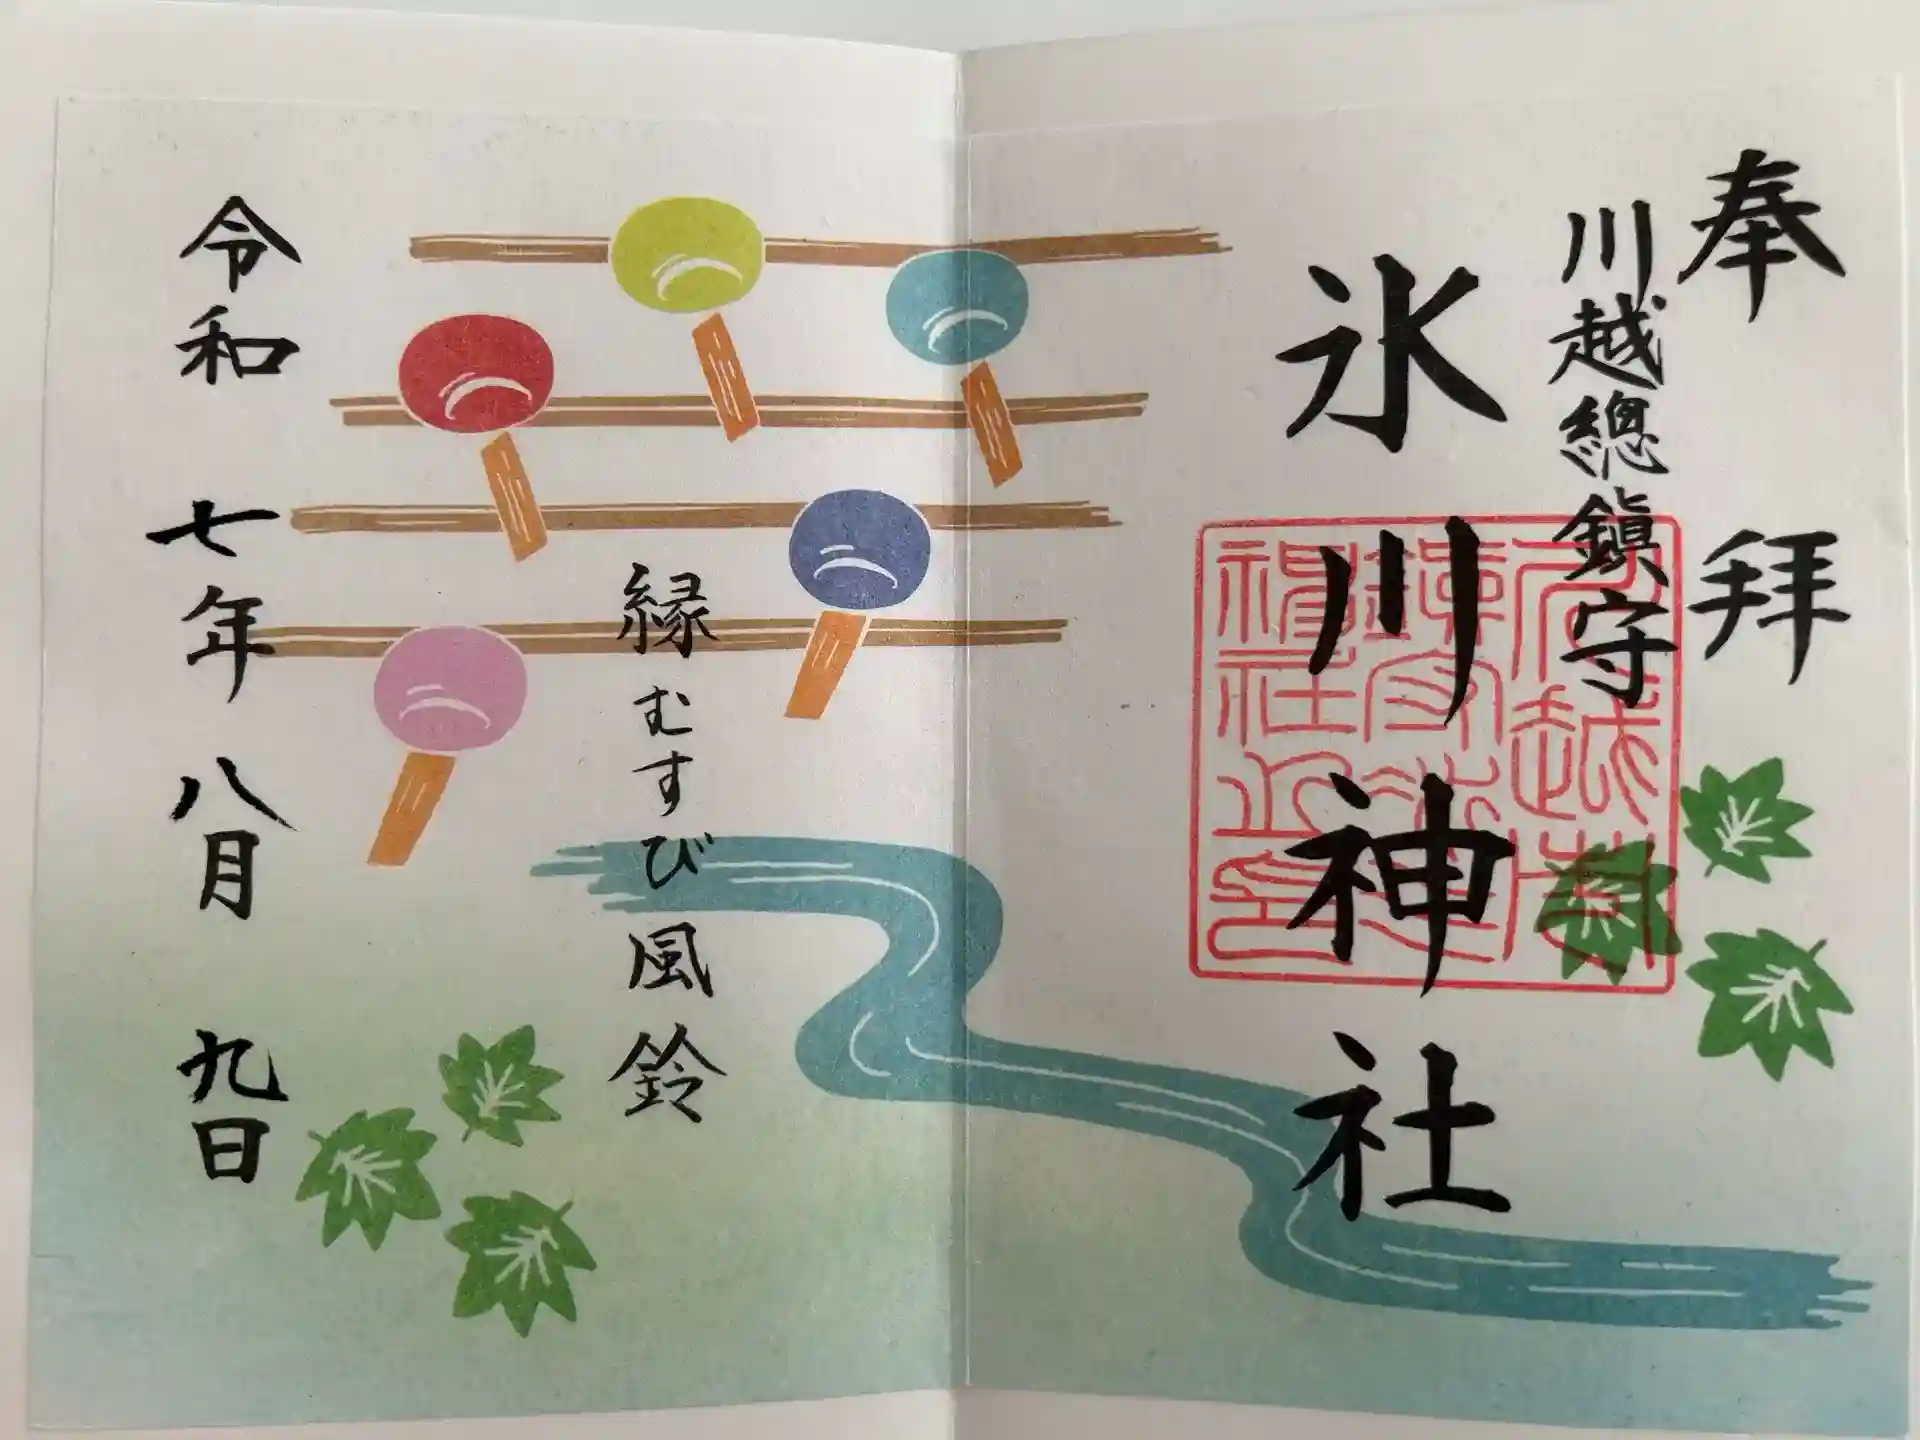 奉拝
川越總鎭守
氷川神社
縁むすび風鈴
令和七年八月九日